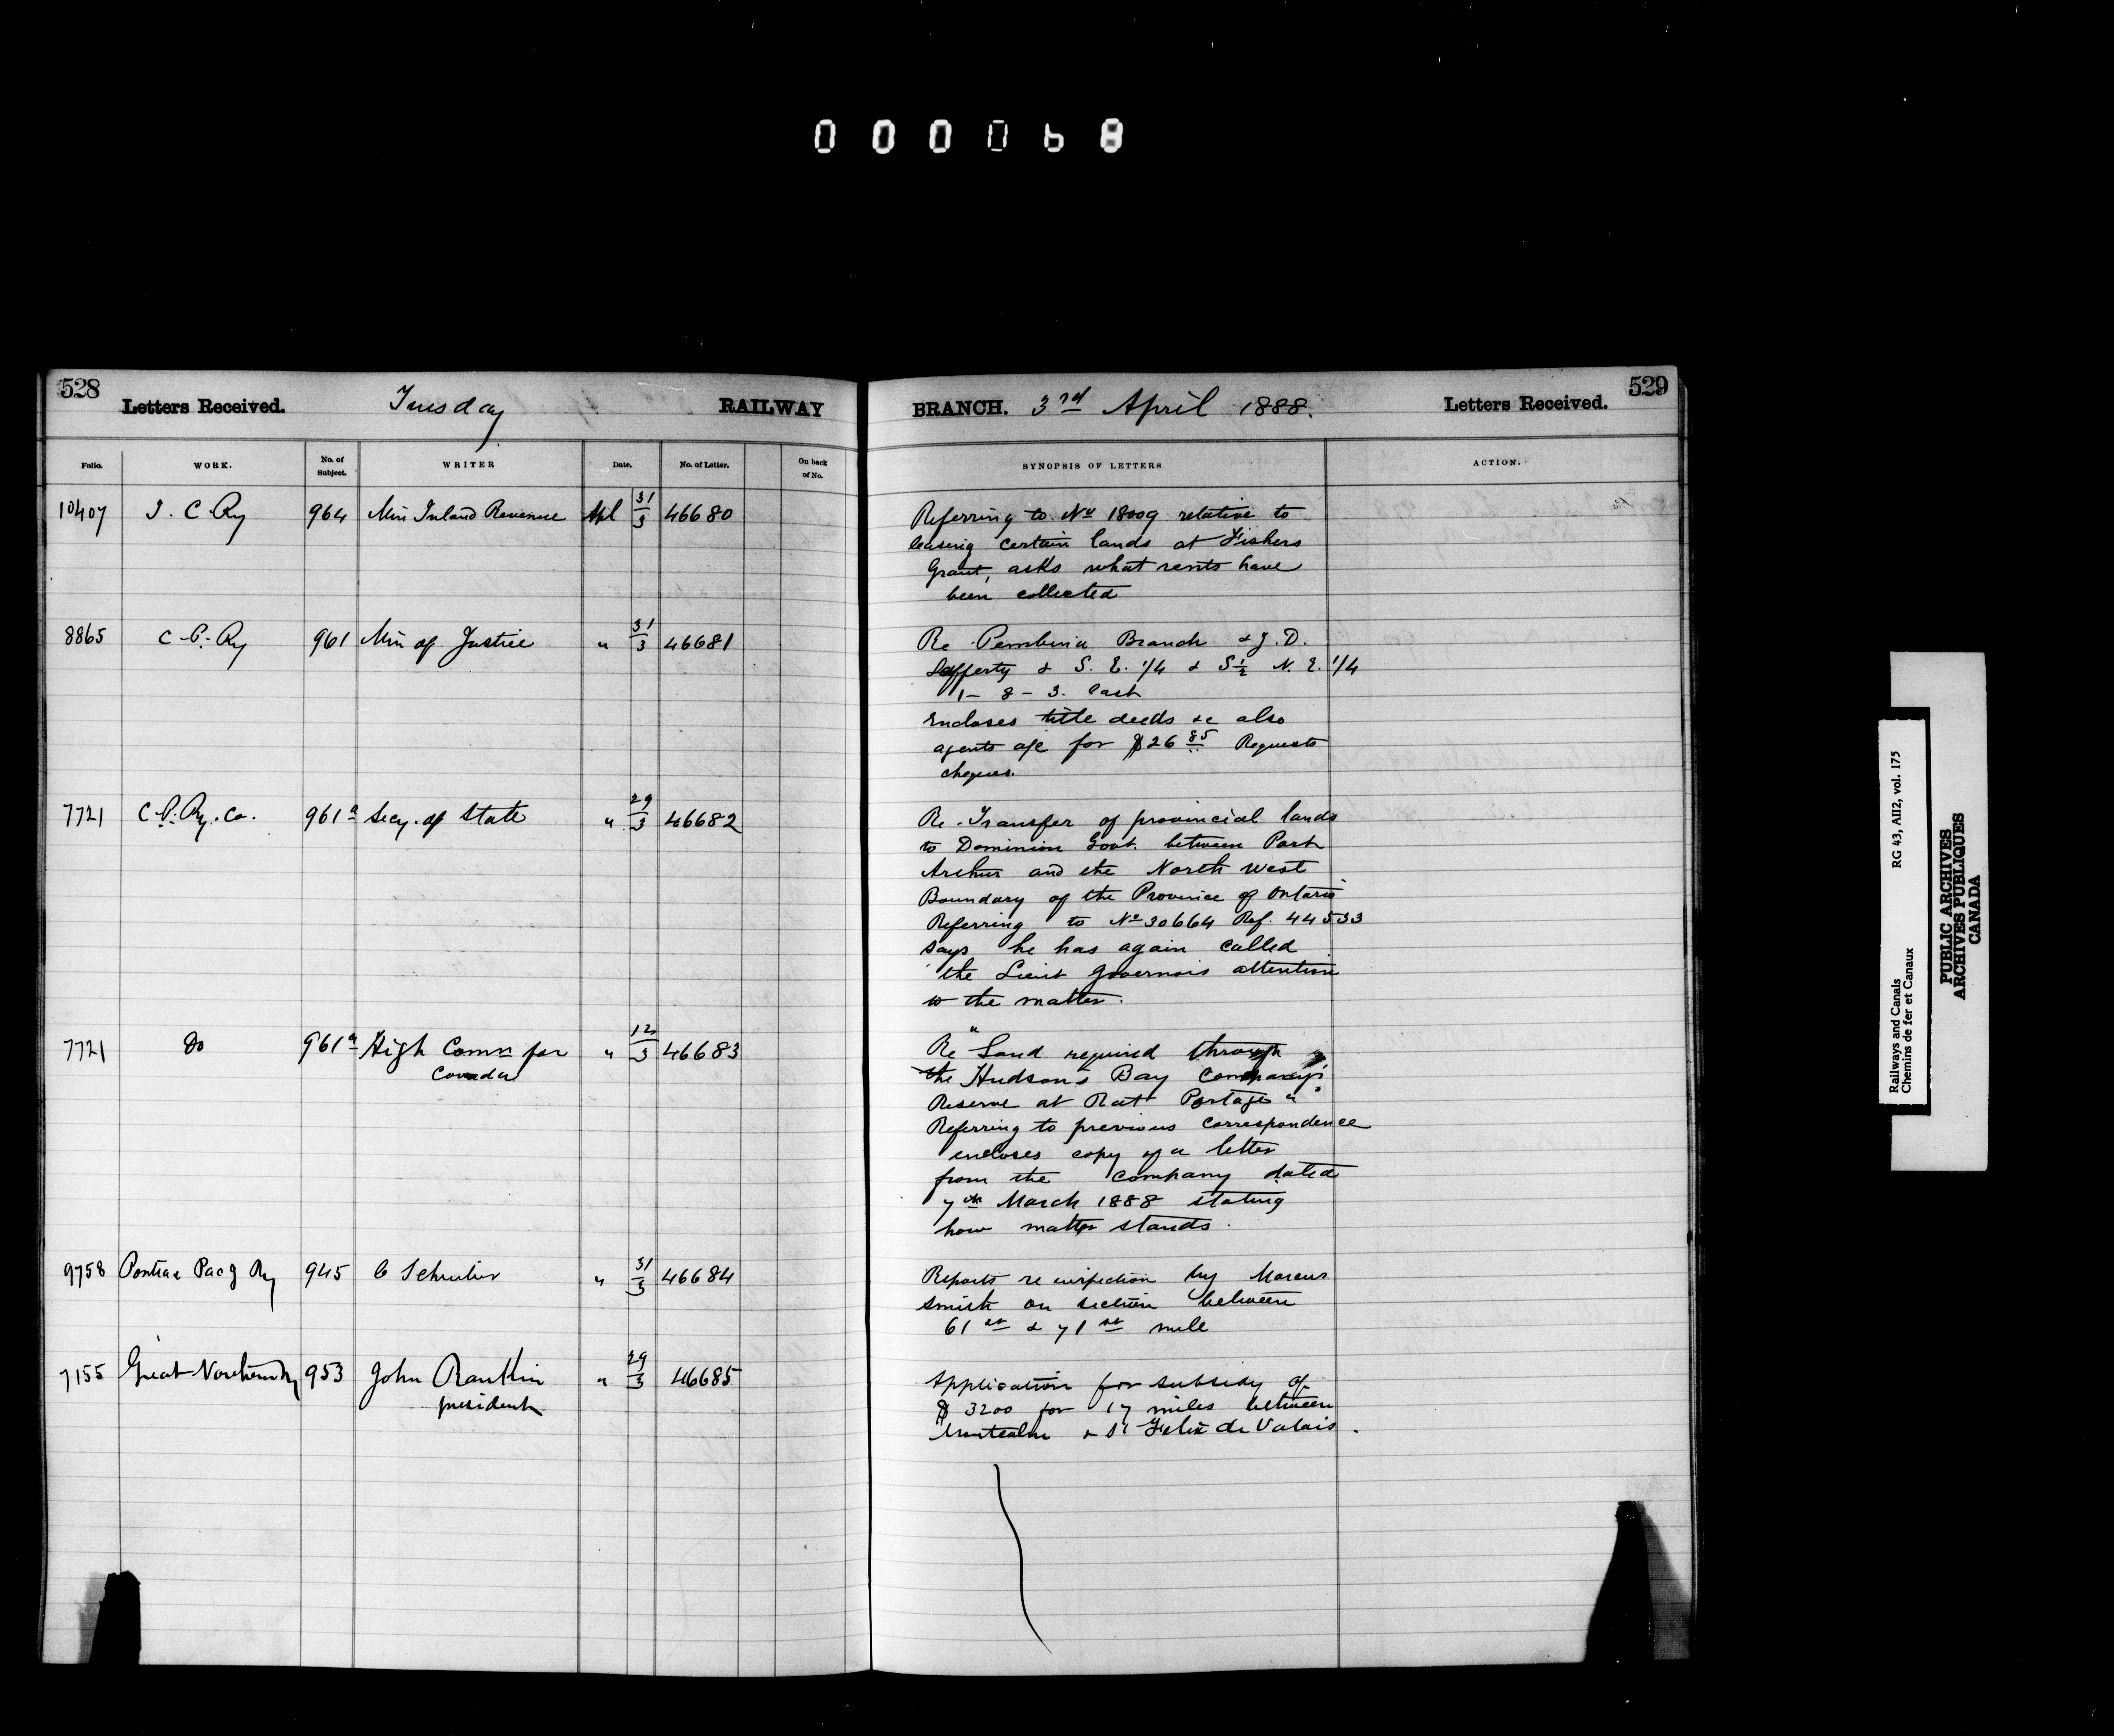 000068
528
Letters Received. Tuesday RAILWAY
BRANCH. 3rd April 1888. Letters Received.
529
Folio. WORK. No. of Subject. WRITER Date. No. of Letter. On back of No.
SYNOPSIS OF LETTERS ACTION.
10407 I. C. Ry 964 Min Inland Revenue Apl 31/3 46680
Referring to No 18009 relative to
leasing certain lands at Fishers
Grant, asks what rents have
been collected
8865 C. P. Ry 961 Min of Justice " 31/3 46681
Re Pembina Branch & J. D.
Lafferty & S. E. 1/4 & S 1/2 N. E. 1/4
1 - 8 - 3. East
Encloses title deeds &c also
agents a/c for $26 85 Requests
cheques.
7721 C. P. Ry. Co. 961a Secy. of State " 29/3 46682
Re Transfer of provincial lands
to Dominion Govt. between Port
Arthur and the North West
Boundary of the Province of Ontario
Referring to No 30664 Ref. 44533
says he has again called
the Lieut Governors attention
to the matter.
7721 Do 961a High Comn for " 12/3 46683
Canada
Re "Land required through
the Hudson's Bay Company's
Reserve at Rat Portage"
Referring to previous correspondence
encloses copy of a letter
from the Company dated
7th March 1888 stating
how matter stands.
9758 Pontiac Pac J Ry 945 C Schreiber " 31/3 46684
Reports re inspection by Marcus
Smith on section between
61st & 71st mile
7155 Great Northern Ry 953 John Rankin " 29/3 46685
president
Application for subsidy of
$ 3200 for 17 miles between
Montcalm & St Felix de Valois.
Railways and Canals RG 43, AII2, vol. 175
Chemins de fer et Canaux
PUBLIC ARCHIVES
ARCHIVES PUBLIQUES
CANADA